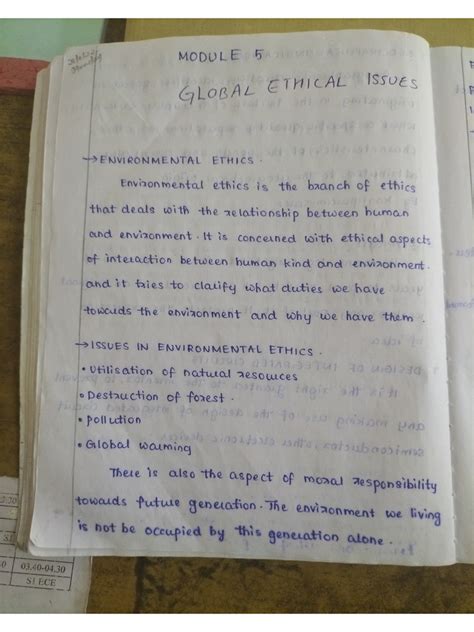 MODULE 5
GLOBAL ETHICAL ISSUES
→ ENVIRONMENTAL ETHICS.
Environmental ethics is the branch of ethics
that deals with the relationship between human
and environment. It is concerned with ethical aspects
of interaction between human kind and environment.
and it tries to clarify what duties we have
towards the environment and why we have them.
→ ISSUES IN ENVIRONMENTAL ETHICS.
• Utilisation of natural resources
• Destruction of forest.
• pollution
• Global warming
There is also the aspect of moral responsibility
towards future generation. The environment we living
is not be occupied by this generation alone.
03.40-04.30
S1 ECE